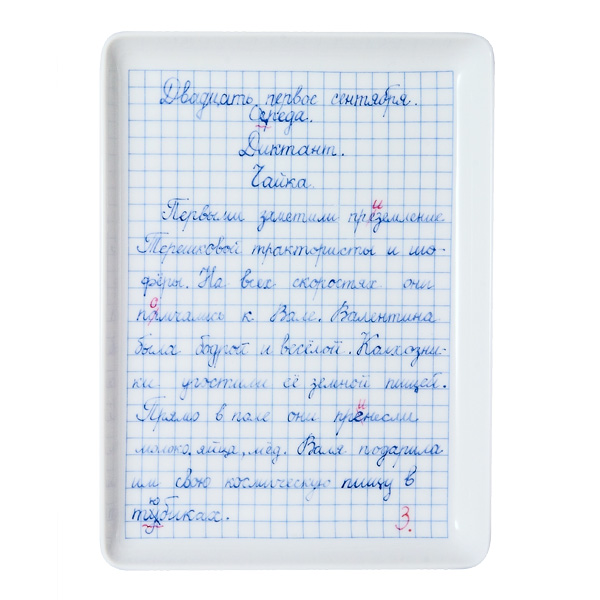 Двадцать первое сентября.
Середа.
Диктант.
Чайка.
Первыми заметили преиземление
Терешковой трактористы и шо-
фёры. На всех скоростях они
помчались к Вале. Валентина
была бодрой и весёлой. Колхозни-
ки угостили её земной пищей.
Прямо в поле они пренесли
молоко, яйца, мёд. Валя подарила
им свою космическую пищу в
тубиках.
3.